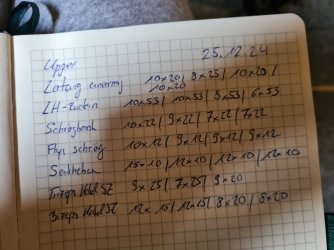 Upper 25.12.24
Latzug unarmig 10x20 / 8x25 / 10x20 /
10x20
LH-Rudern 10x53 / 10x53 / 8x53 / 6x53
Schrägbank 10x22 / 9x22 / 7x22 / 7x22
Flys schräg 10x12 / 9x12 / 9x12 / 9x12
Seitheben 15x10 / 12x10 / 12x10 / 12x10
Trizeps Kabel SZ 9x25 / 7x25 / 9x20
Bizeps Kabel SZ 12x15 / 12x15 / 8x20 / 8x20